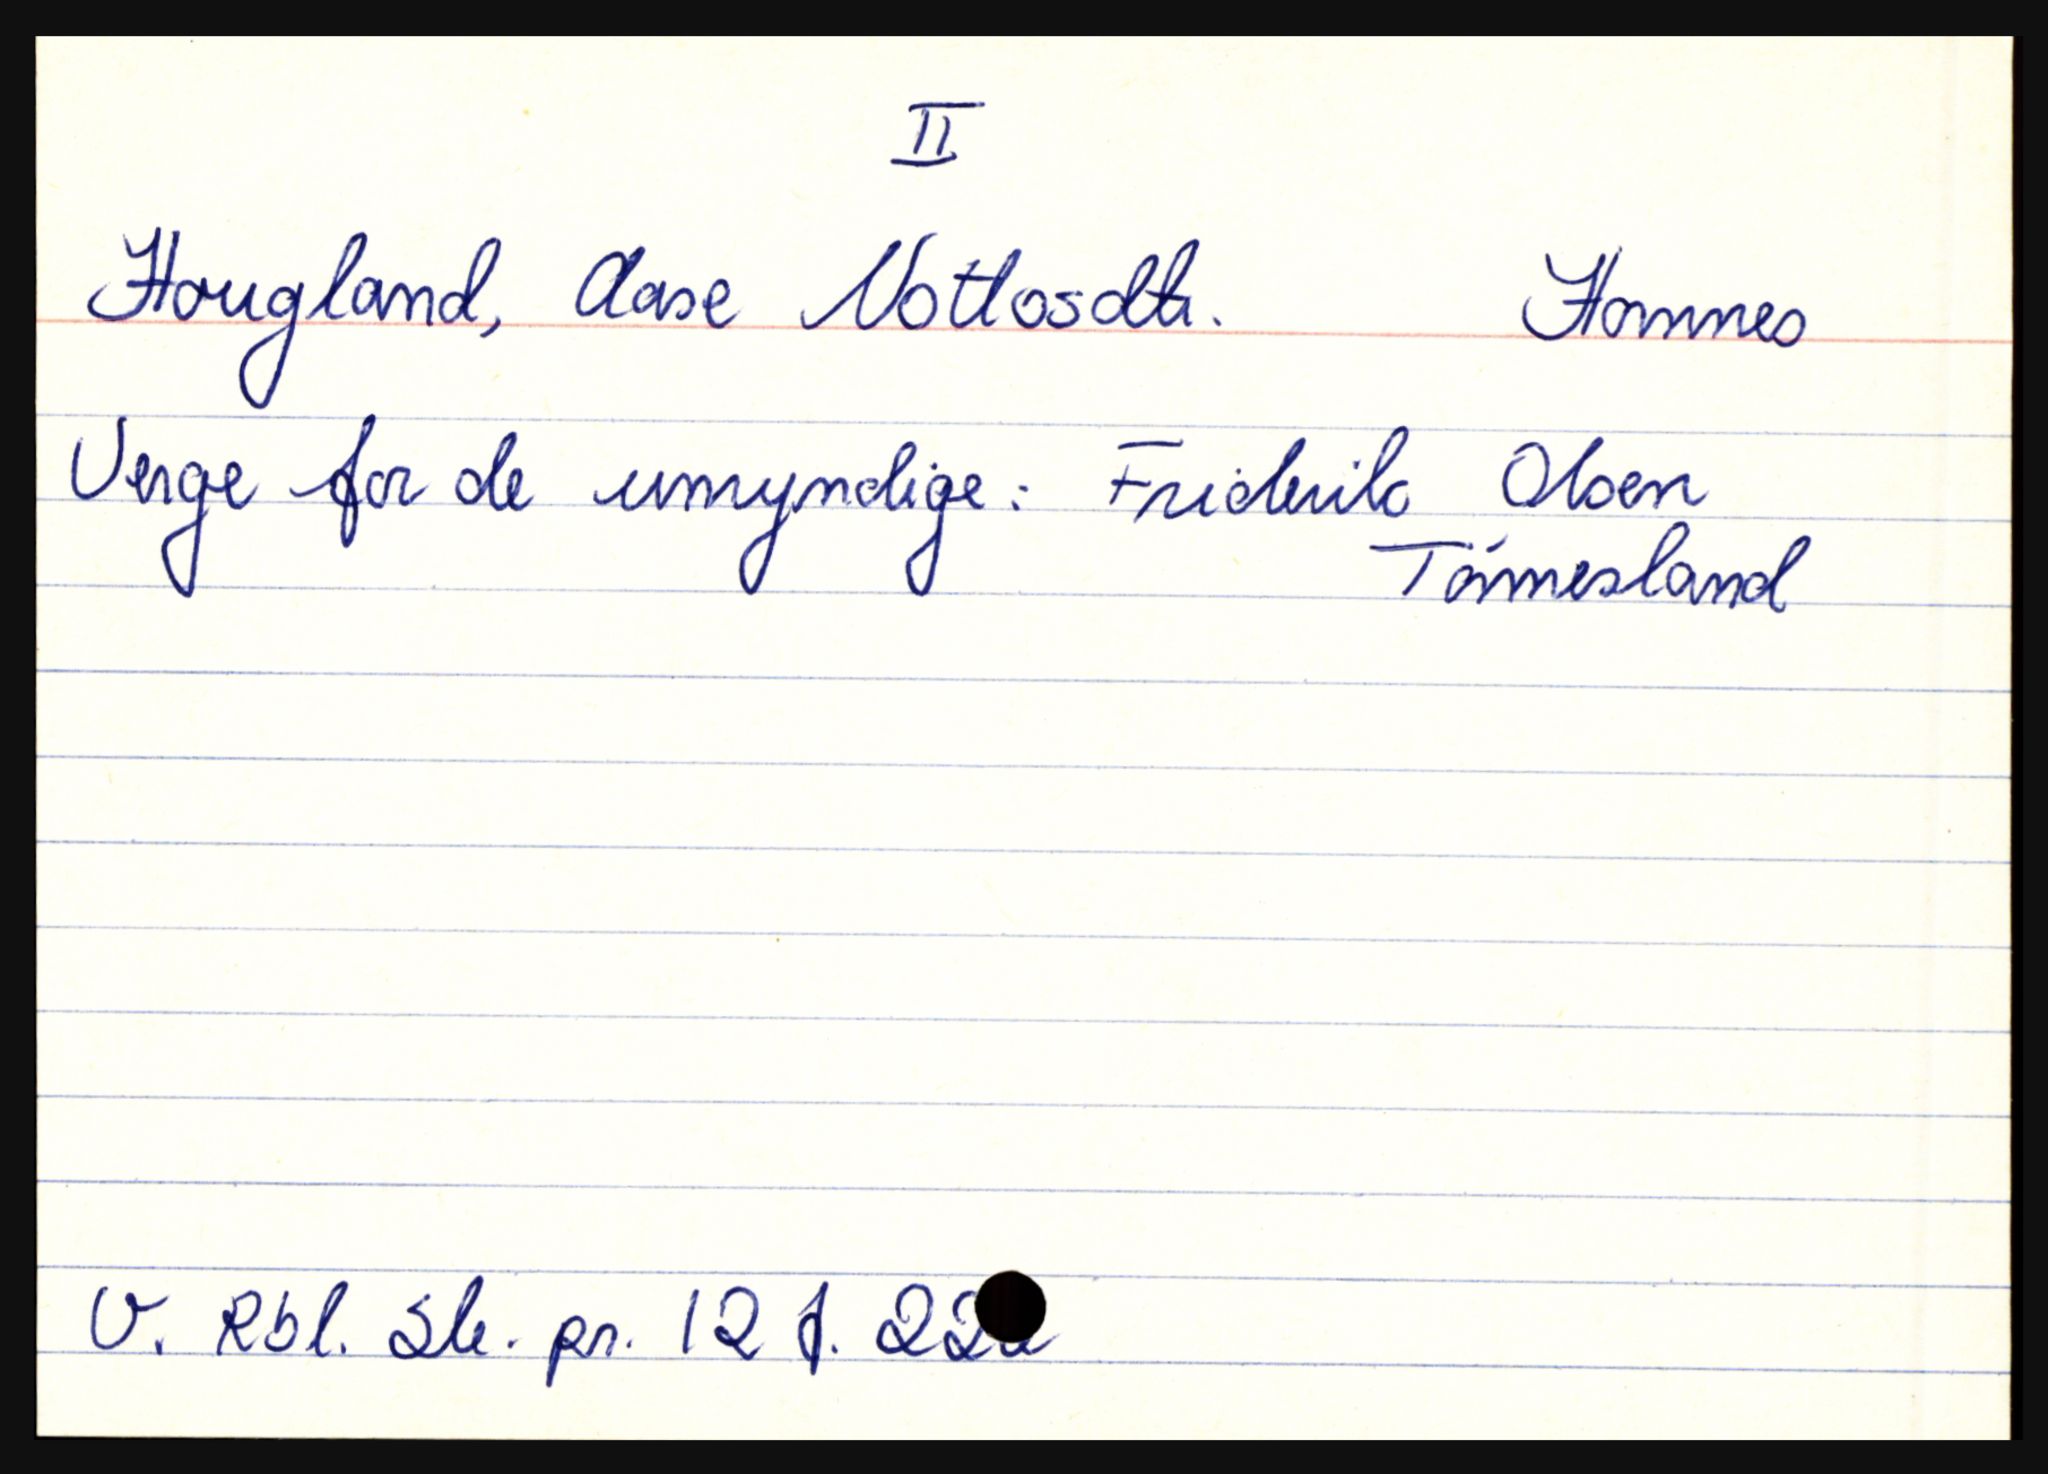 II
Hougland, Aase Notlosdtr. Homnes
Verge for de umyndige: Friderik Olsen
Tómesland
V. Rbl. Sk. pr. 12 f. 22a